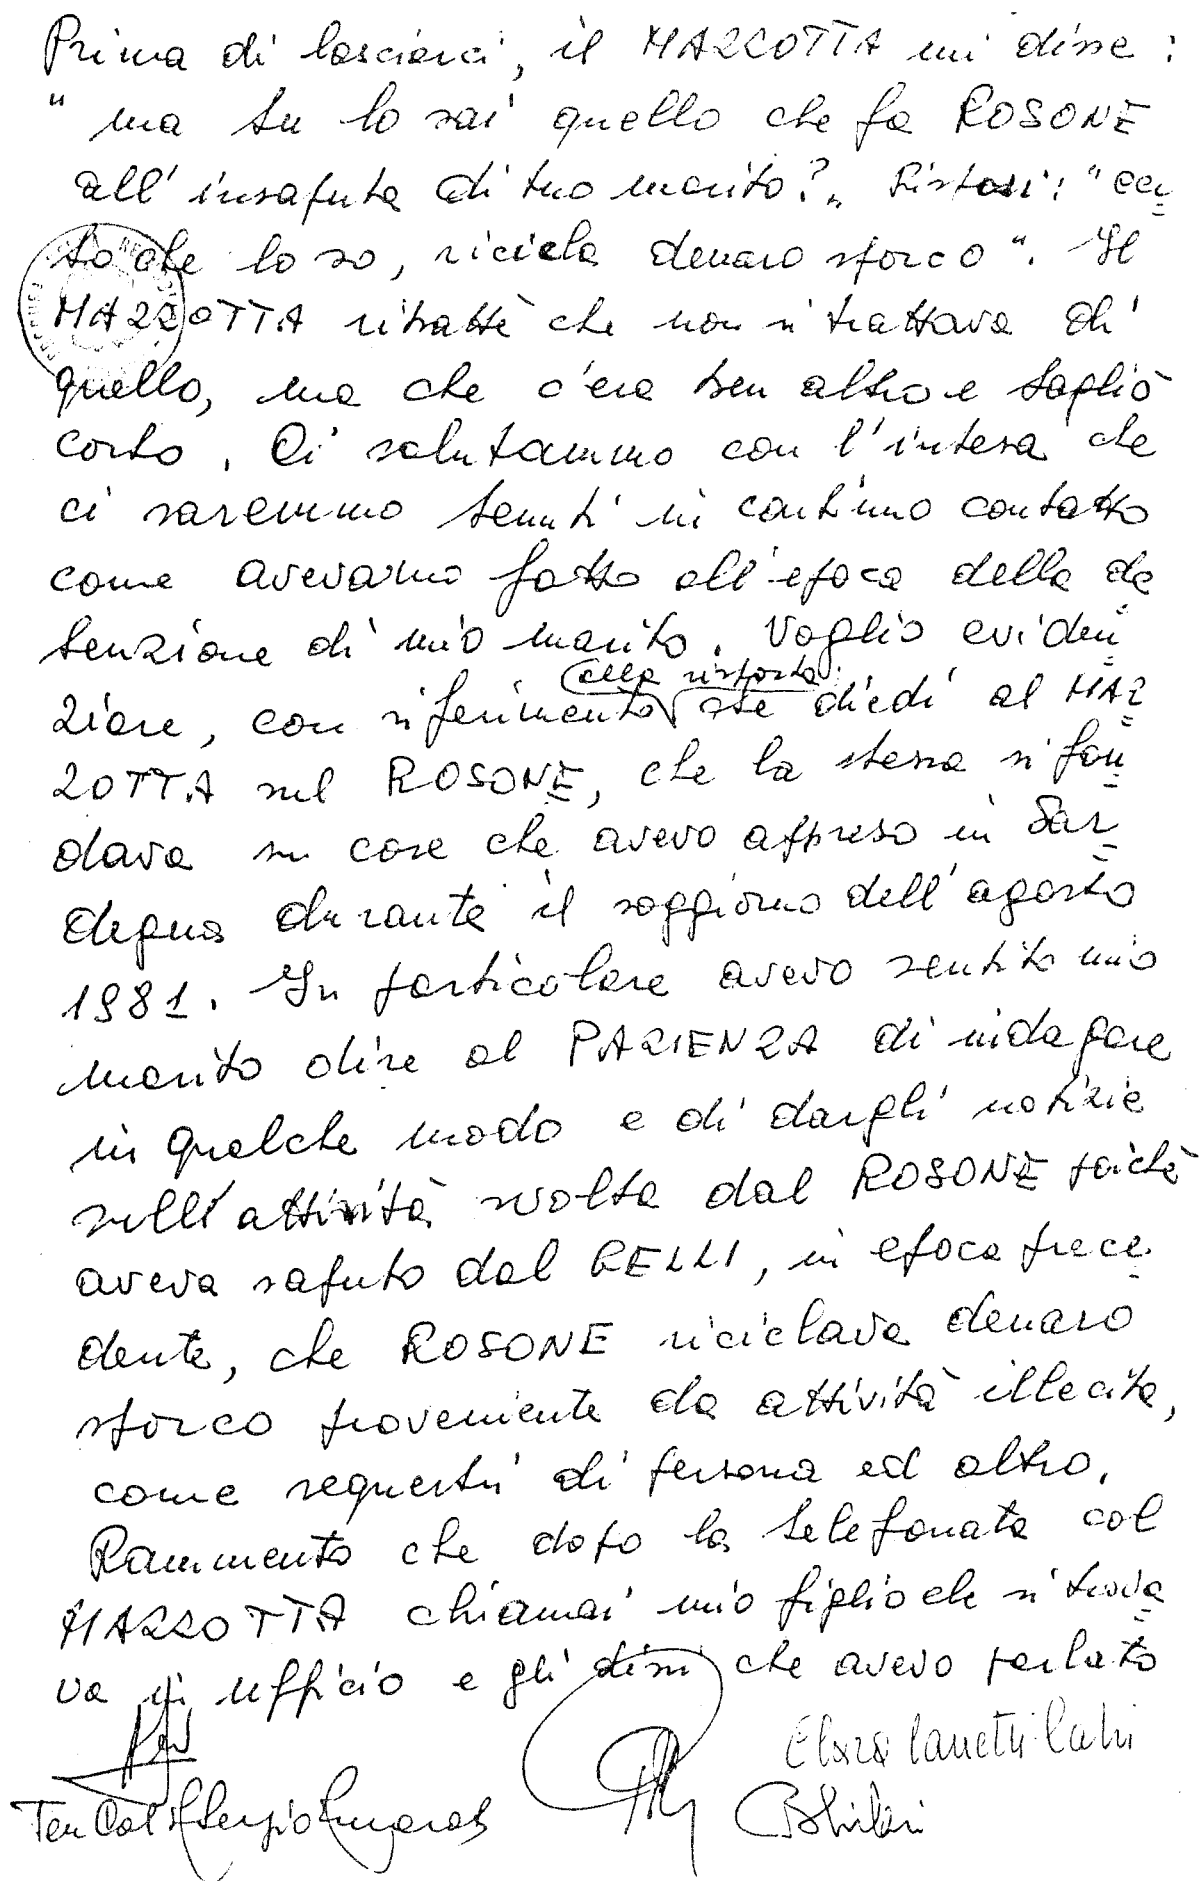 Prima di lasciarci, il MAZZOTTA mi disse:
“ma tu lo sai quello che fa ROSONE
all'insaputa di tuo marito?„ Risposi: “cer
to che lo so, ricicla denaro sporco”. Il
MAZZOTTA ribattè che non si trattava di
quello, ma che c'era ben altro e tagliò
corto. Ci salutammo con l'intesa che
ci saremmo tenuti in continuo contatto
come avevamo fatto all'epoca della de
tenzione di mio marito. Voglio eviden
alla risposta
ziare, con riferimento che diedi al MAZ
ZOTTA sul ROSONE, che la stessa si fon
dava su cose che avevo appreso in Sar
degna durante il soggiorno dell'agosto
1981. In particolare avevo sentito mio
marito dire al PAZIENZA di indagare
in qualche modo e di dargli notizie
sull'attività svolta dal ROSONE poichè
aveva saputo dal GELLI, in epoca prece
dente, che ROSONE riciclava denaro
sporco proveniente da attività illecita,
come sequestri di persona ed altro.
Rammento che dopo la telefonata col
MAZZOTTA chiamai mio figlio che si trova
va in ufficio e gli dissi che avevo parlato
Clara Canetti Calvi
Ten Col Sergio